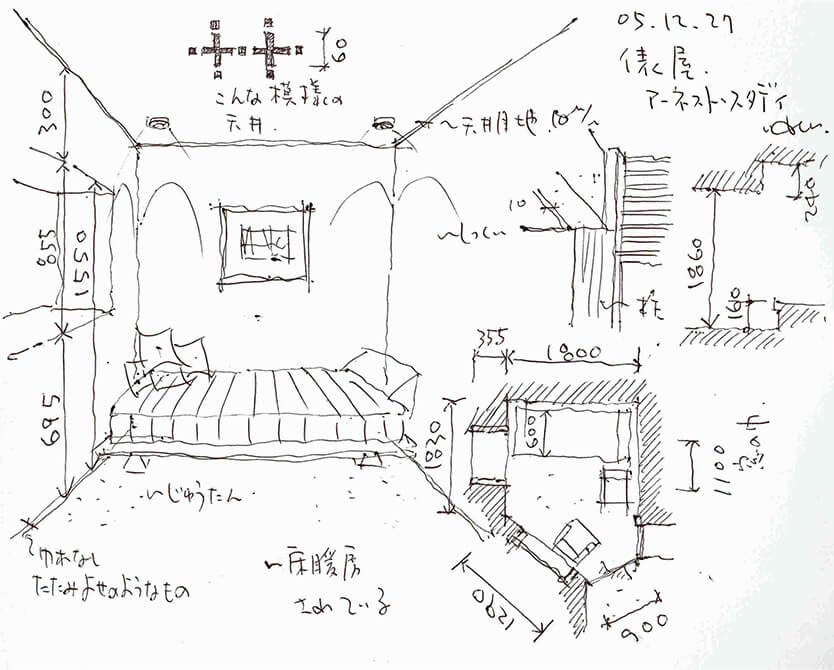 05.12.27
俵屋.
アーネスト・スタディ
60
こんな模様の
天井.
~天井目地
300
855
1550
695
10
~しっくい
~柱
240
1860
160
355
1800
1830
600
1100
~じゅうたん
~床暖房
されている
巾木なし
たたみよせのようなもの
1290
900